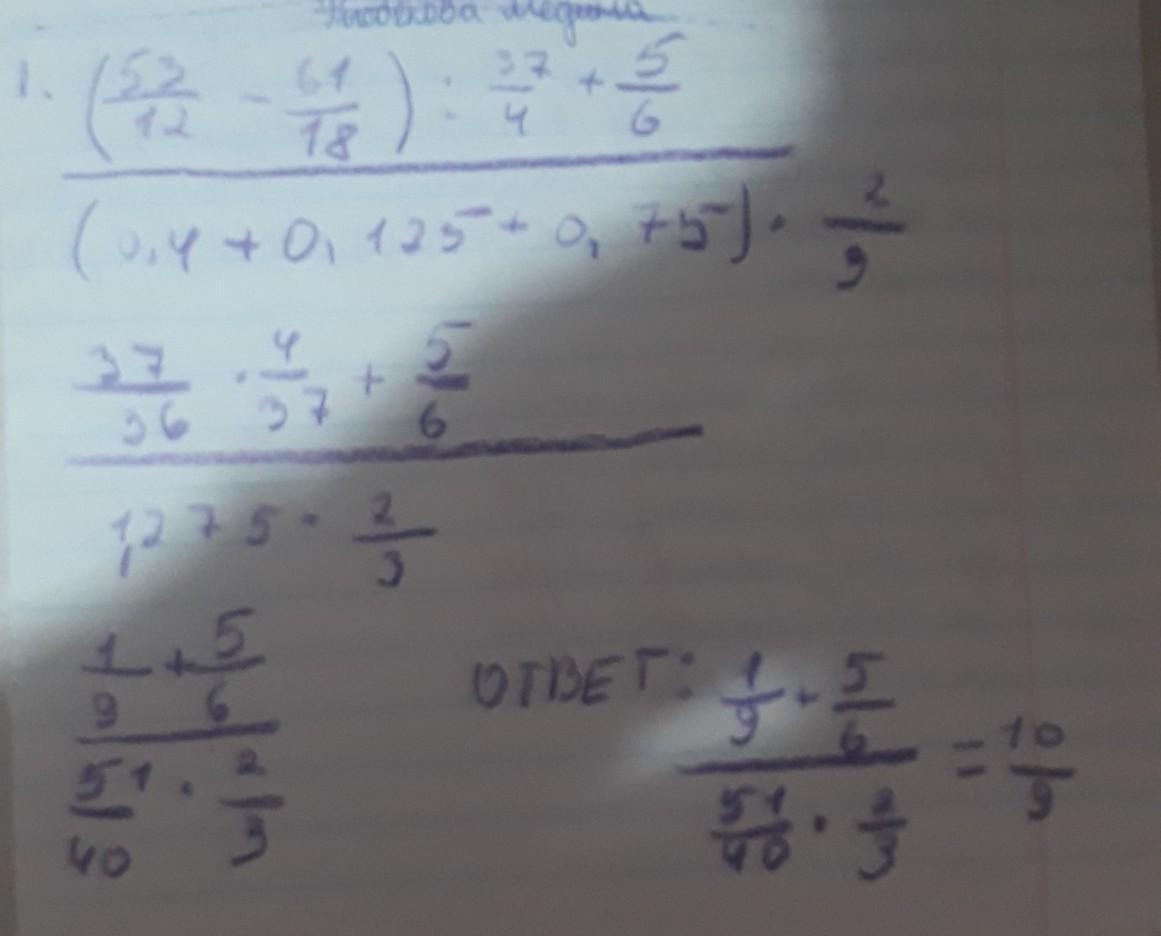 1. (53/12 - 61/18) : 37/4 + 5/6
(0,4 + 0,125 + 0,75) · 2/9
37/36 · 4/37 + 5/6
1,275 · 2/3
1/9 + 5/6
51/40 · 2/3
ОТВЕТ: 1/9 + 5/6
51/40 · 2/3 = 10/9